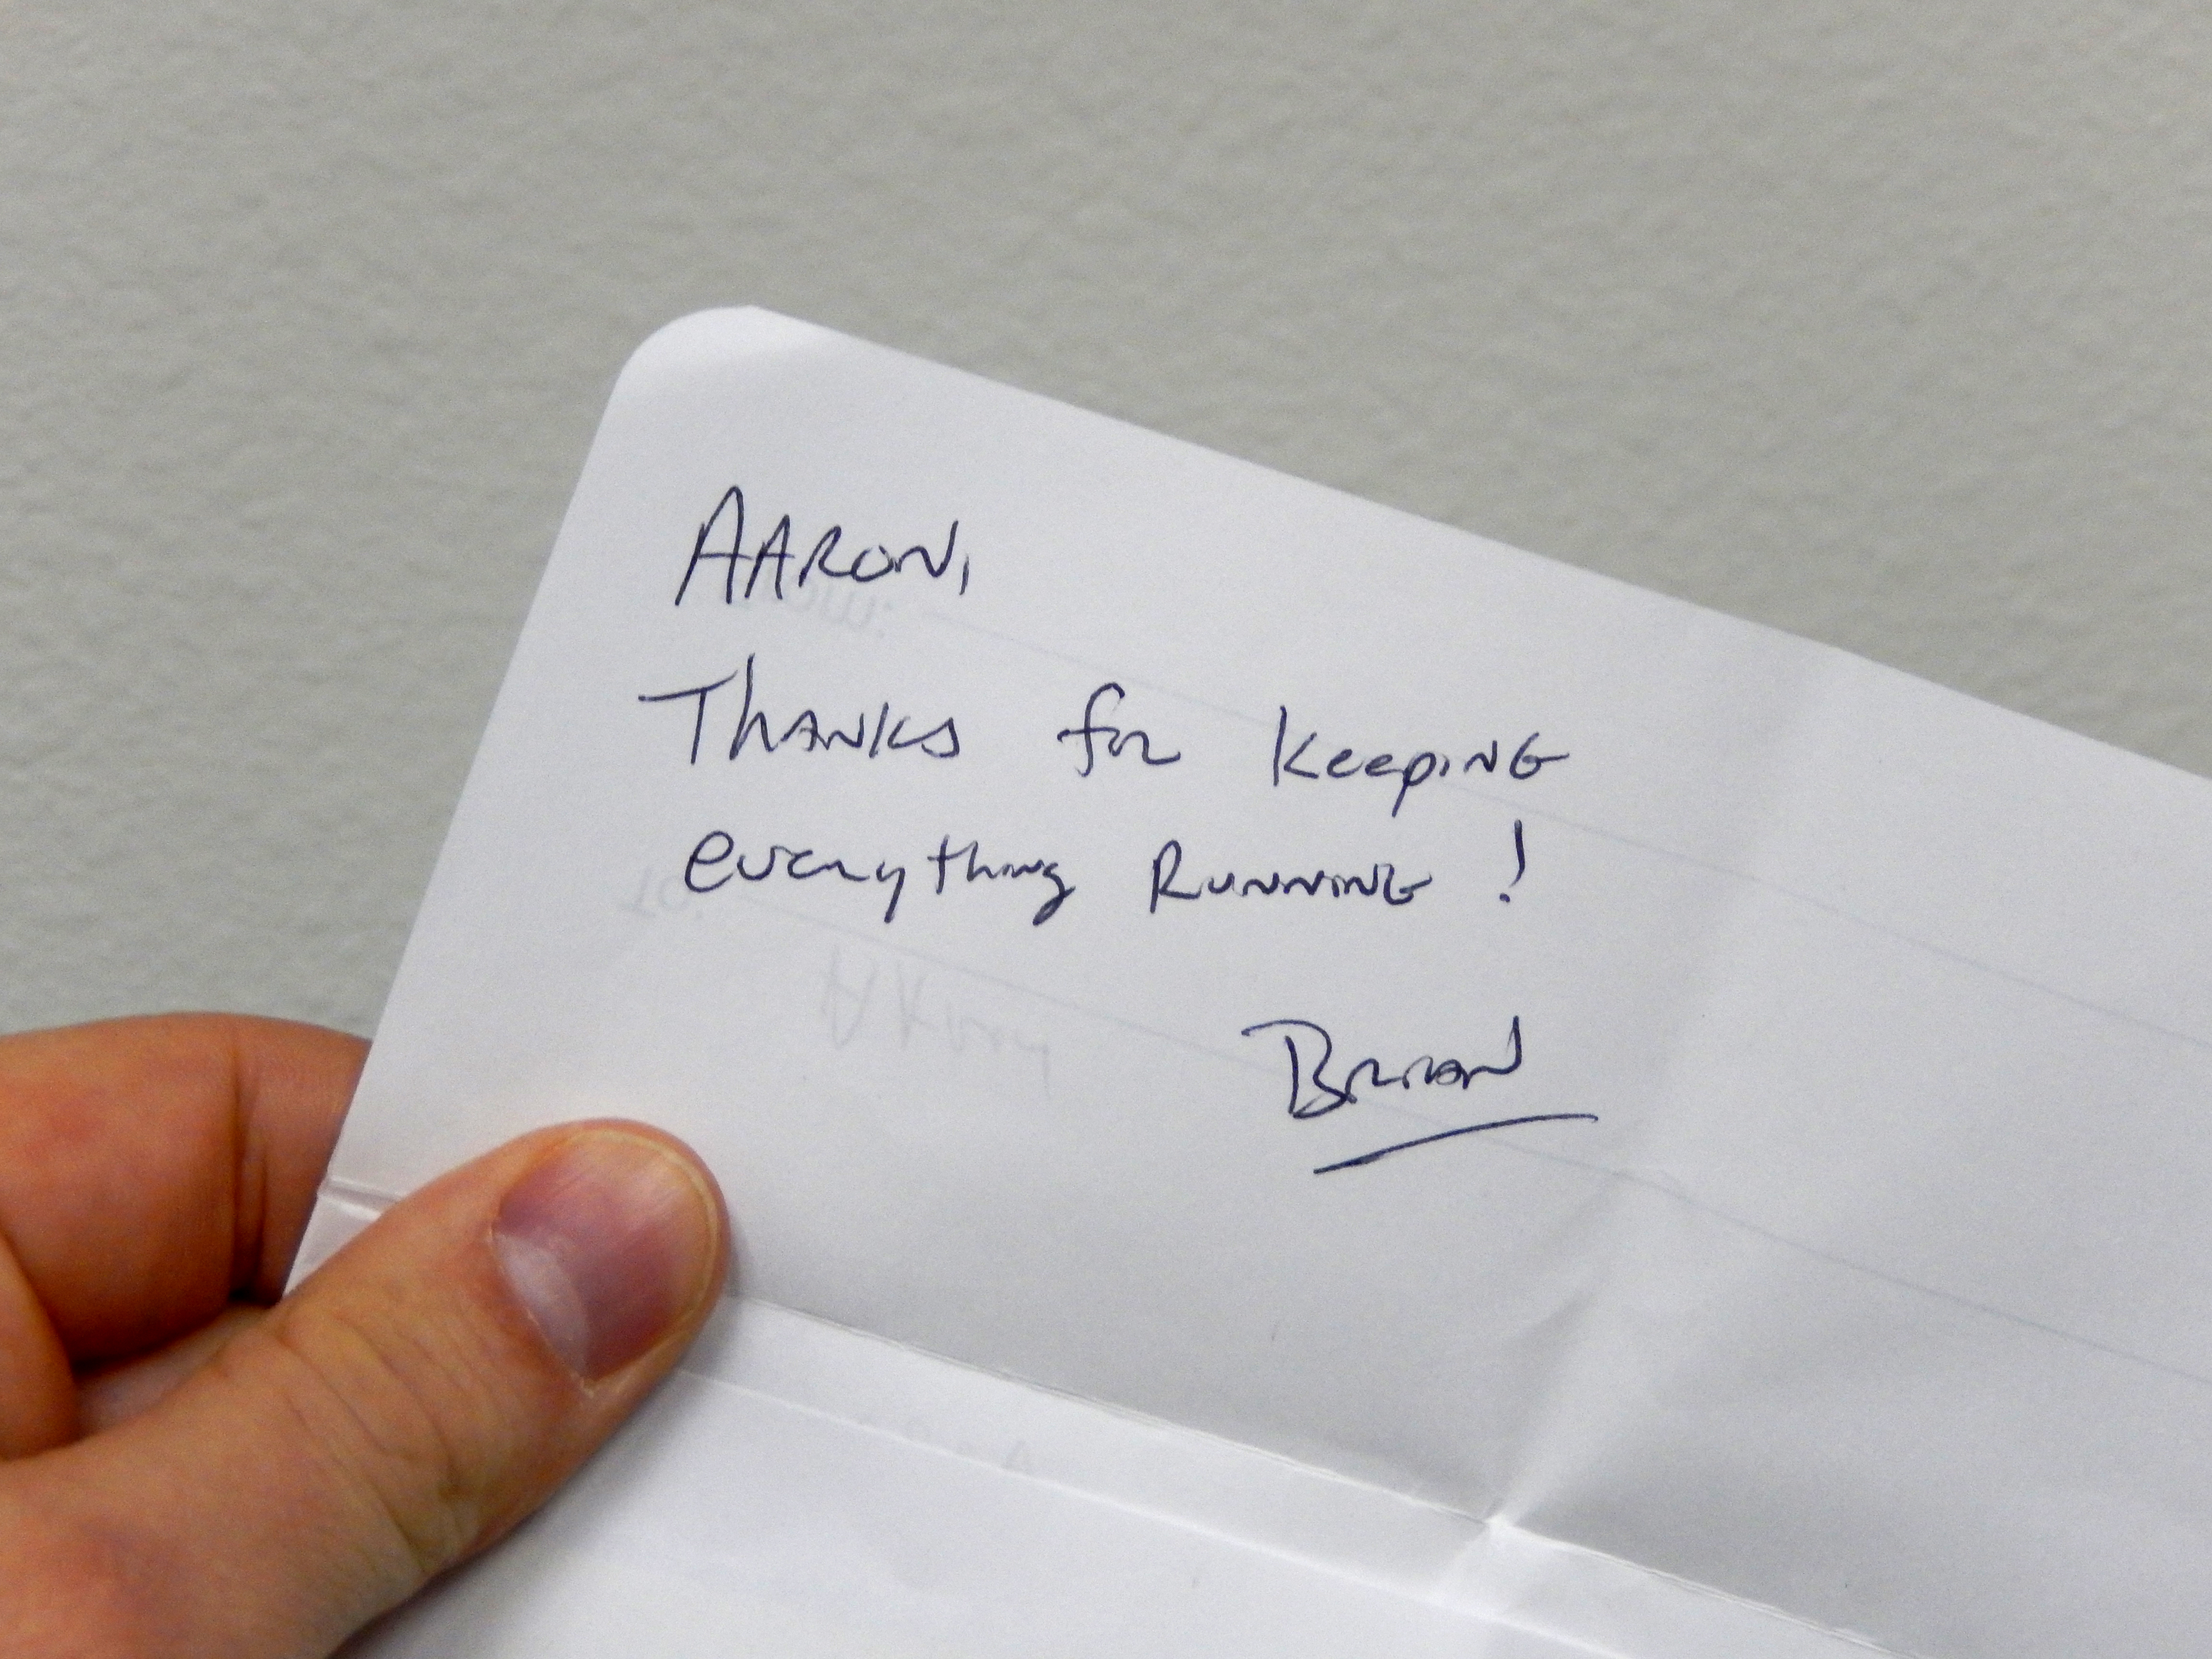 AARON,
Thanks for keeping
everything Running!
Brian